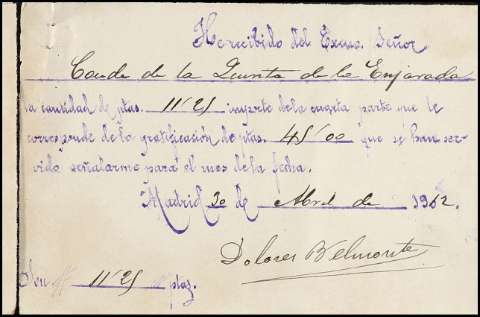 He recibido del Excmo. Señor
Conde de la Quinta de la Enjarada
la cantidad de ptas. 11'25 importe de la cuarta parte que le
corresponde de la gratificación de ptas. 45'00 que se han ser-
vido señalarme para el mes de la fecha.
Madrid 30 de Abril de 1912.
Dolores Belmonte
Son 11'25 ptas.